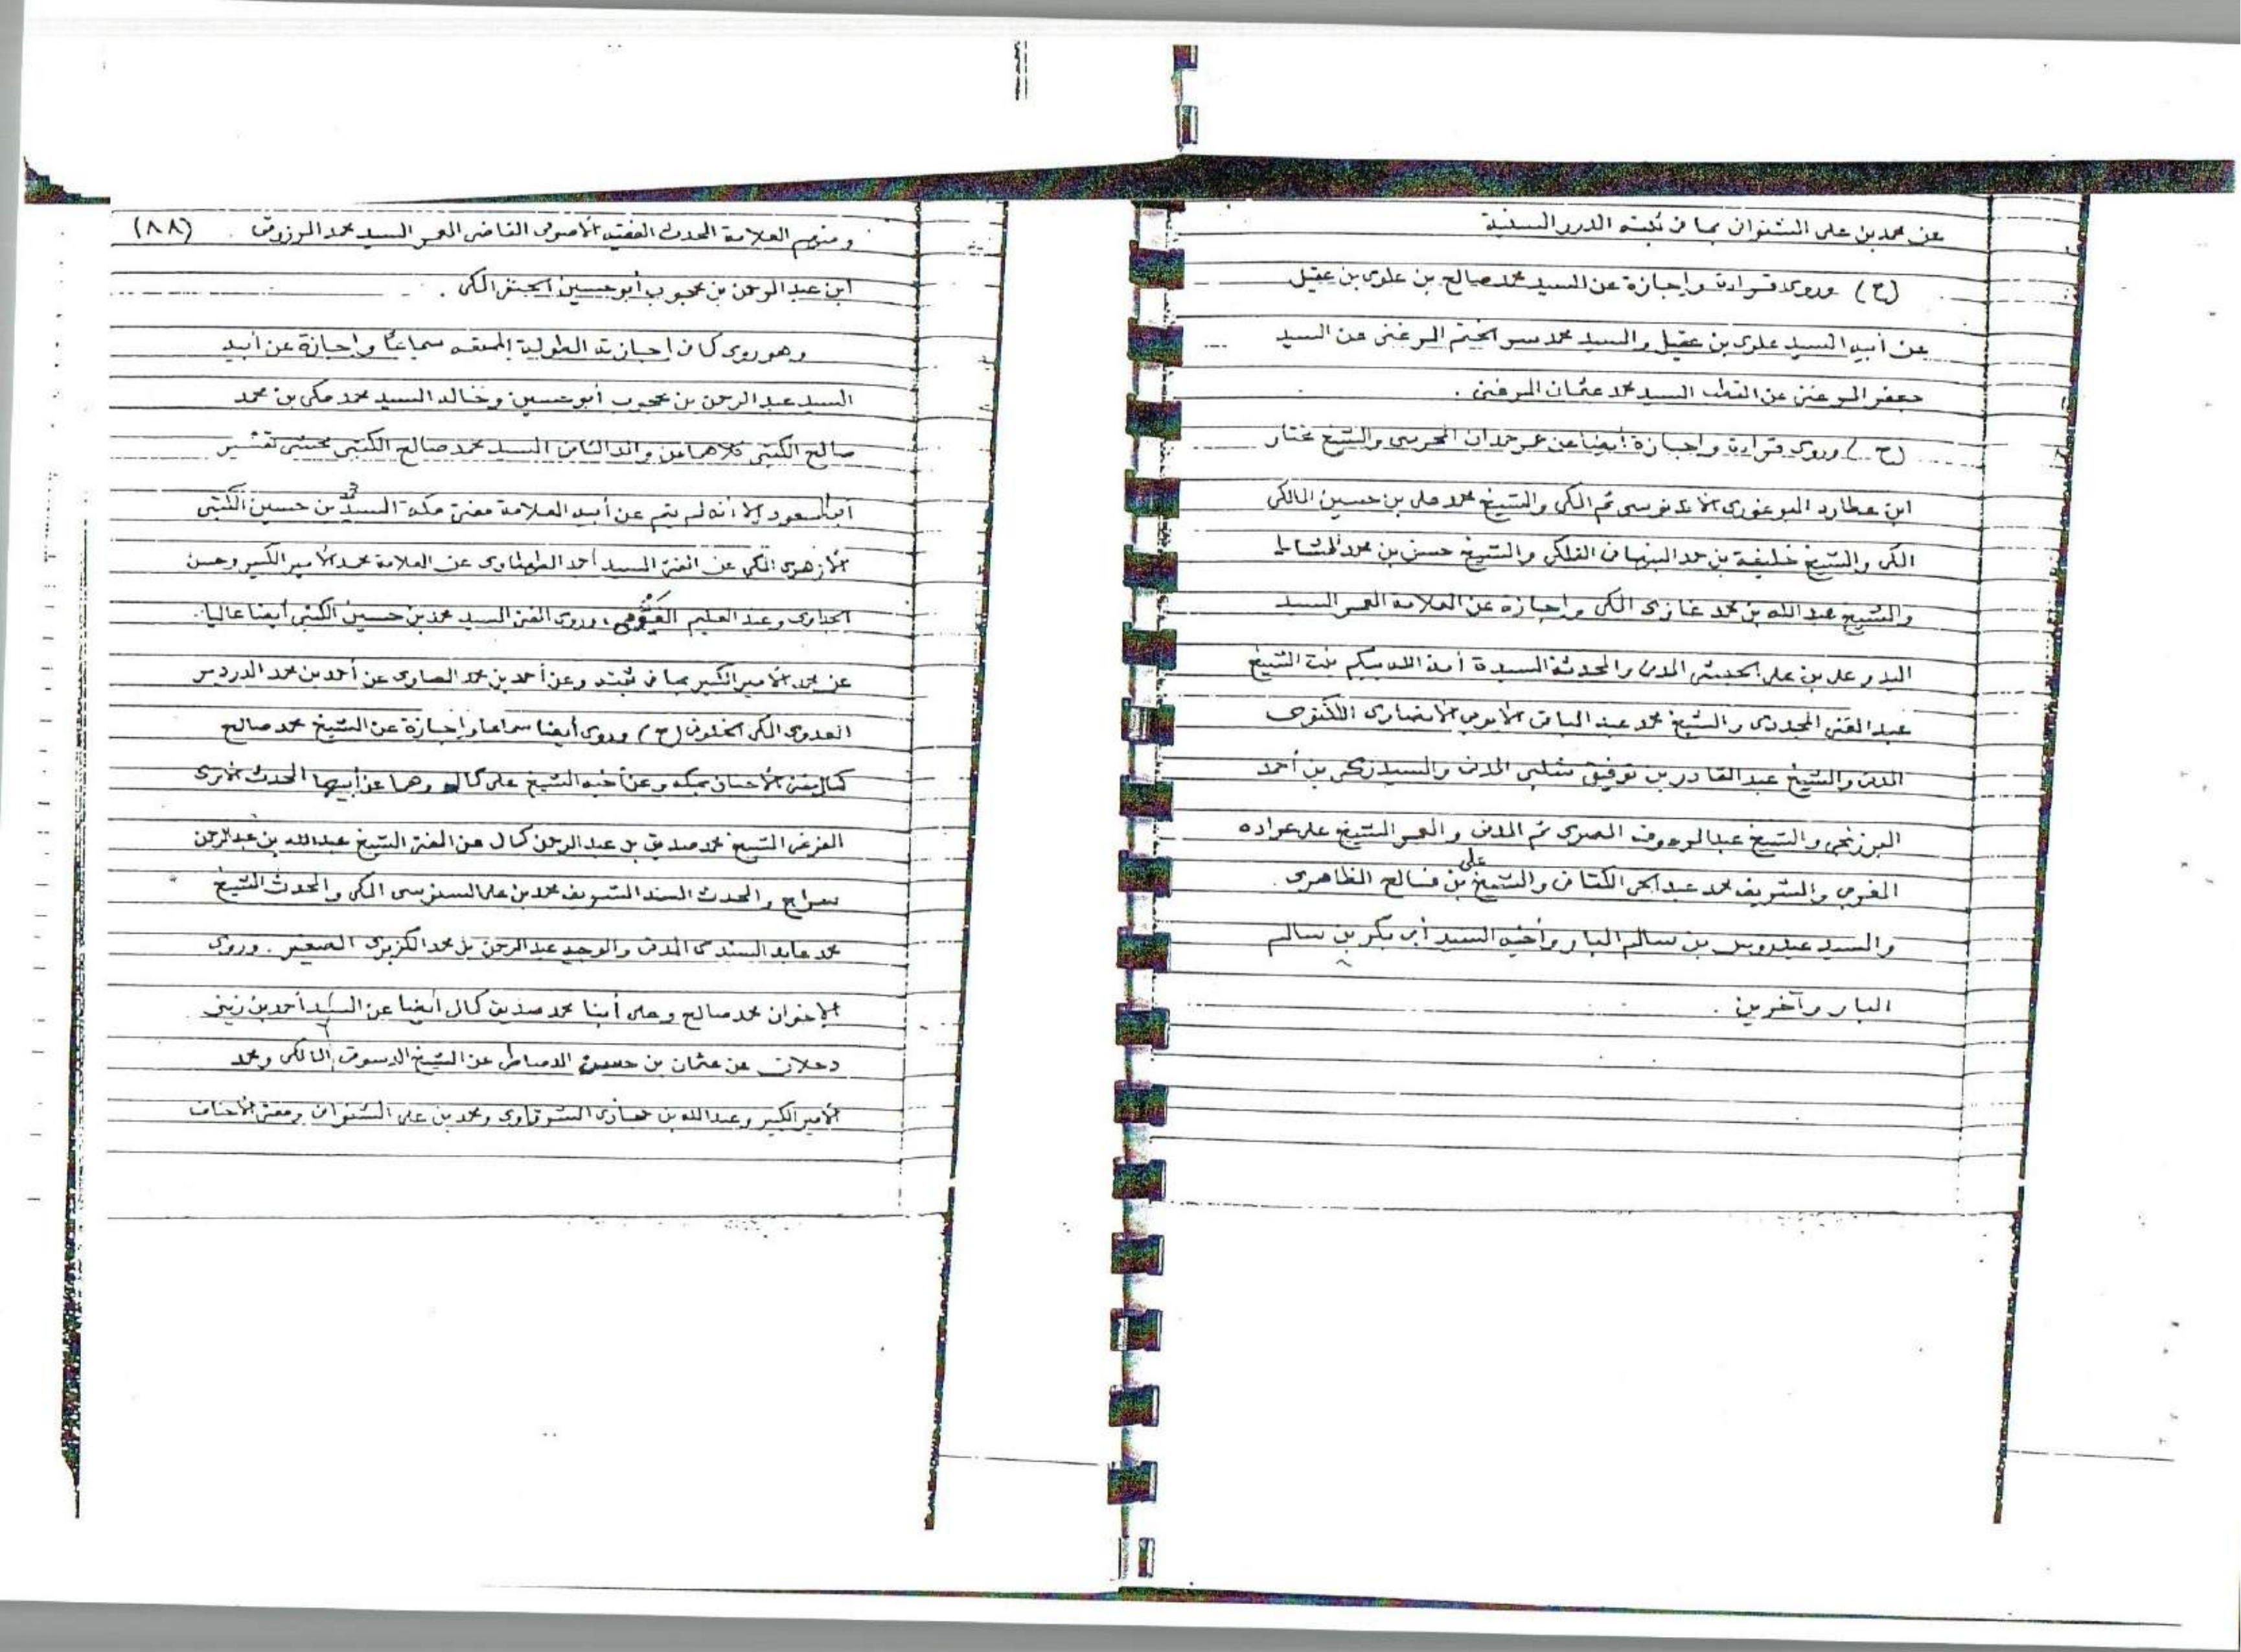 عن محمد بن على الشنوانى بما فى ثبته الدرر السنية
(ح) وروى قراءة وإجازة عن السيد محمد صالح بن علوى بن عقيل
عن أبيه السيد علوى بن عقيل والسيد محمد سر الختم المرغنى عن السيد
جعفر المرغنى عن القطب السيد محمد عثمان المرغنى .
(ح) وروى قراءة وإجازة أيضا عن عمر حمدان المحرسى والشيخ مختار
ابن عطارد البوغورى الأندنوسى ثم المكى والشيخ محمد على بن حسين المالكى
المكى والشيخ خليفة بن حمد النبهانى الفلكى والشيخ حسن بن محمد المشاط
والشيخ عبد الله بن محمد غازى المكى وإجازة عن العلامة المعمر السيد
البدر على بن على الحبشى المدنى والمحدثة السيدة أمة الله بيكم بنت الشيخ
عبد الغنى المجددى والشيخ محمد عبد الباقى الأيوبى الأنصارى اللكنوى
المدنى والشيخ عبد القادر بن توفيق شلبى المدنى والسيد زكى بن أحمد
البرزنجى والشيخ عبد الرءوف المصرى ثم المدنى والمعمر الشيخ على عراده
المغربى والشريف محمد عبد الحى الكتانى والشيخ على بن فالح الظاهرى .
والسيد عيدروس بن سالم البار وأخيه السيد أبى بكر بن سالم
البار وآخرين .
ومنهم العلامة المحدث الفقيه الأصولى القاضى المعمر السيد محمد المرزوقى (٨٨)
ابن عبد الرحمن بن محجوب أبو حسين الحنفى المكى .
وهو روى كما فى إجازته المطولة سماعا وإجازة عن أبيه
السيد عبد الرحمن بن محجوب أبو حسين وخاله السيد محمد مكى بن محمد
صالح الكتبى كلاهما عن والد الثانى السيد محمد صالح الكتبى محشى تفسير
أبى السعود إلا أنه لم يتم عن أبيه العلامة مفتى مكة السيد محمد بن حسين الكتبى
الأزهرى المكى عن المفتى السيد أحمد الطهطاوى عن العلامة محمد الأمير الكبير وحسن
الجداوى وعبد العليم الفيومى ، وروى المفتى السيد محمد بن حسين الكتبى أيضا عاليا .
عن محمد الأمير الكبير بما فى ثبته وعن أحمد بن محمد الصاوى عن أحمد بن محمد الدردير
العدوى المكى الخلوتى (ح) وروى أيضا سماعا وإجازة عن الشيخ محمد صالح
كمال مفتى الأحناف بمكة وعن أخيه الشيخ على كمال وهما عن أبيهما المحدث الأثرى
الفرضى الشيخ محمد صديق بن عبد الرحمن كمال عن المفتى الشيخ عبد الله بن عبد الرحمن
سراج والمحدث المسند الشريف محمد بن على السنوسى المكى والمحدث الشيخ
محمد عابد السندى المدنى والوجيه عبد الرحمن بن محمد الكزبرى الصغير . وروى
الإخوان محمد صالح وعلى أبنا محمد صديق كمال أيضا عن السيد أحمد بن زينى
دحلان عن عثمان بن حسن الدمياطى عن الشيخ الدسوقى المالكى ومحمد
الأمير الكبير وعبد الله بن حجازى الشرقاوى ومحمد بن على الشنوانى ومفتى الأحناف